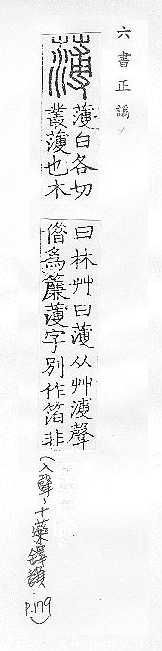 六書正譌
薄
薄白各切
叢薄也木
曰林艸曰薄从艸溥聲
借爲簾薄字別作箔非
(入聲~十藥鐸韻
P.179)